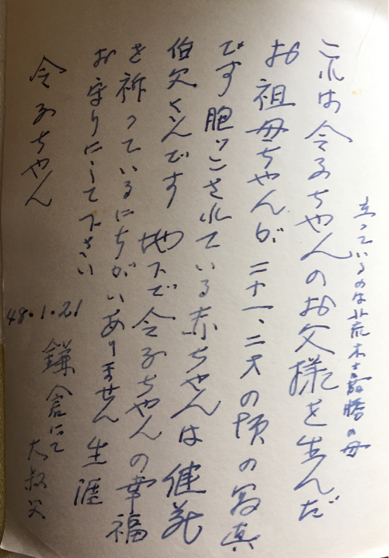 立っているのは荒木の母
これは令子ちゃんのお父様を生んだ
お祖母ちゃんが二十一、二才の頃の写真
です 抱っこされている赤ちゃんは
伯父さんです 地下で令子ちゃんの幸福
を祈っているにちがいありません 生涯
お守りにして下さい
令子ちゃん
48.1.21
鎌倉にて
大叔父